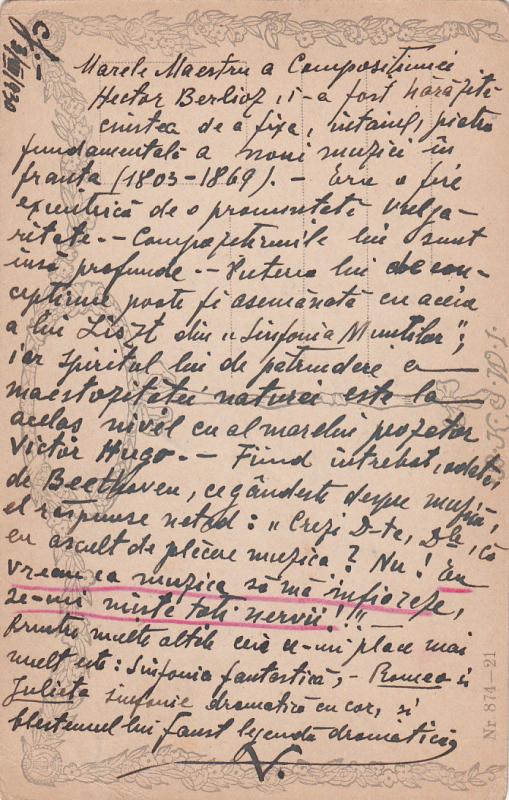 3/III/930
Marele Maestru a Compozitiunii
Hector Berlioz, i-a fost hărăzită
cinstea de a fixa, întâiul, piatra
fundamentală a noui muzici în
franta (1803-1869). - Era o fire
exentrică de o pronuntată vulga-
ritate. - Compozitiunile lui sunt
însă profunde. - Puterea lui de con-
ceptiune poate fi asemănată cu aceia
a lui Liszt din „Sinfonia Muntilor";
iar spiritul lui de pătrundere a
maestozitătei naturei este la
acelas nivel cu al marelui prozator
Victor Hugo. - Fiind întrebat, odată,
de Beethoven, ce gândeste despre muzică,
el răspunse neted: „Crezi D-ta, Dle, că
eu ascult de plăcere muzica? Nu! Eu
vreau ca muzica să mă înfioreze,
se-mi miste toti nervii!"
Printre multe altele ceia ce-mi place mai
mult este: Sinfonia fantastică, - Romeo si
Julieta sinfonie dramatică cu cor, si
blestemul lui Faust legendă dramatică,
V.
Nr 874-21